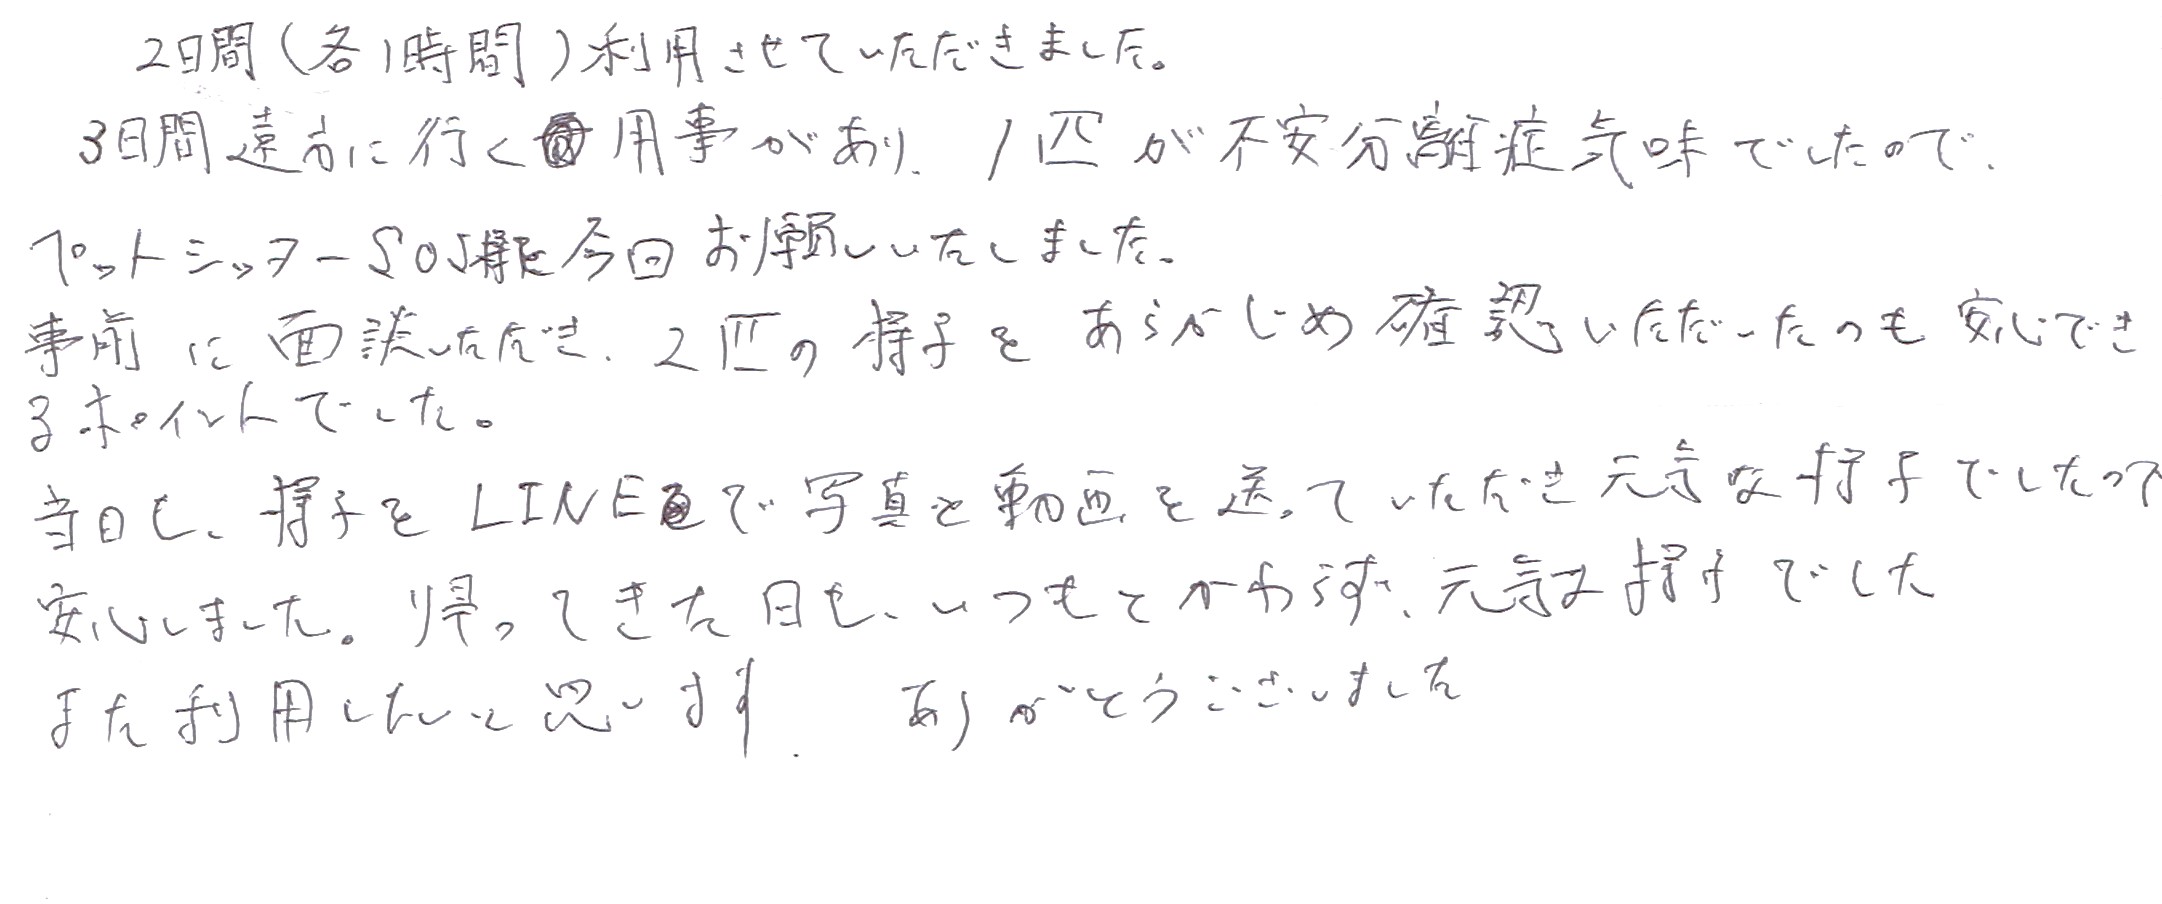 2日間(各1時間)利用させていただきました。
3日間遠方に行く用事があり、1匹が不安分離症気味でしたので、
ペットシッターSOS様に今回お願いいたしました。
事前に面談いただき、2匹の様子をあらかじめ確認いただいたのも安心でき
るポイントでした。
当日も、様子をLINEで写真と動画を送っていただき元気な様子でしたので
安心しました。帰ってきた日も、いつもとかわらず、元気な様子でした
また利用したいと思います。ありがとうございました